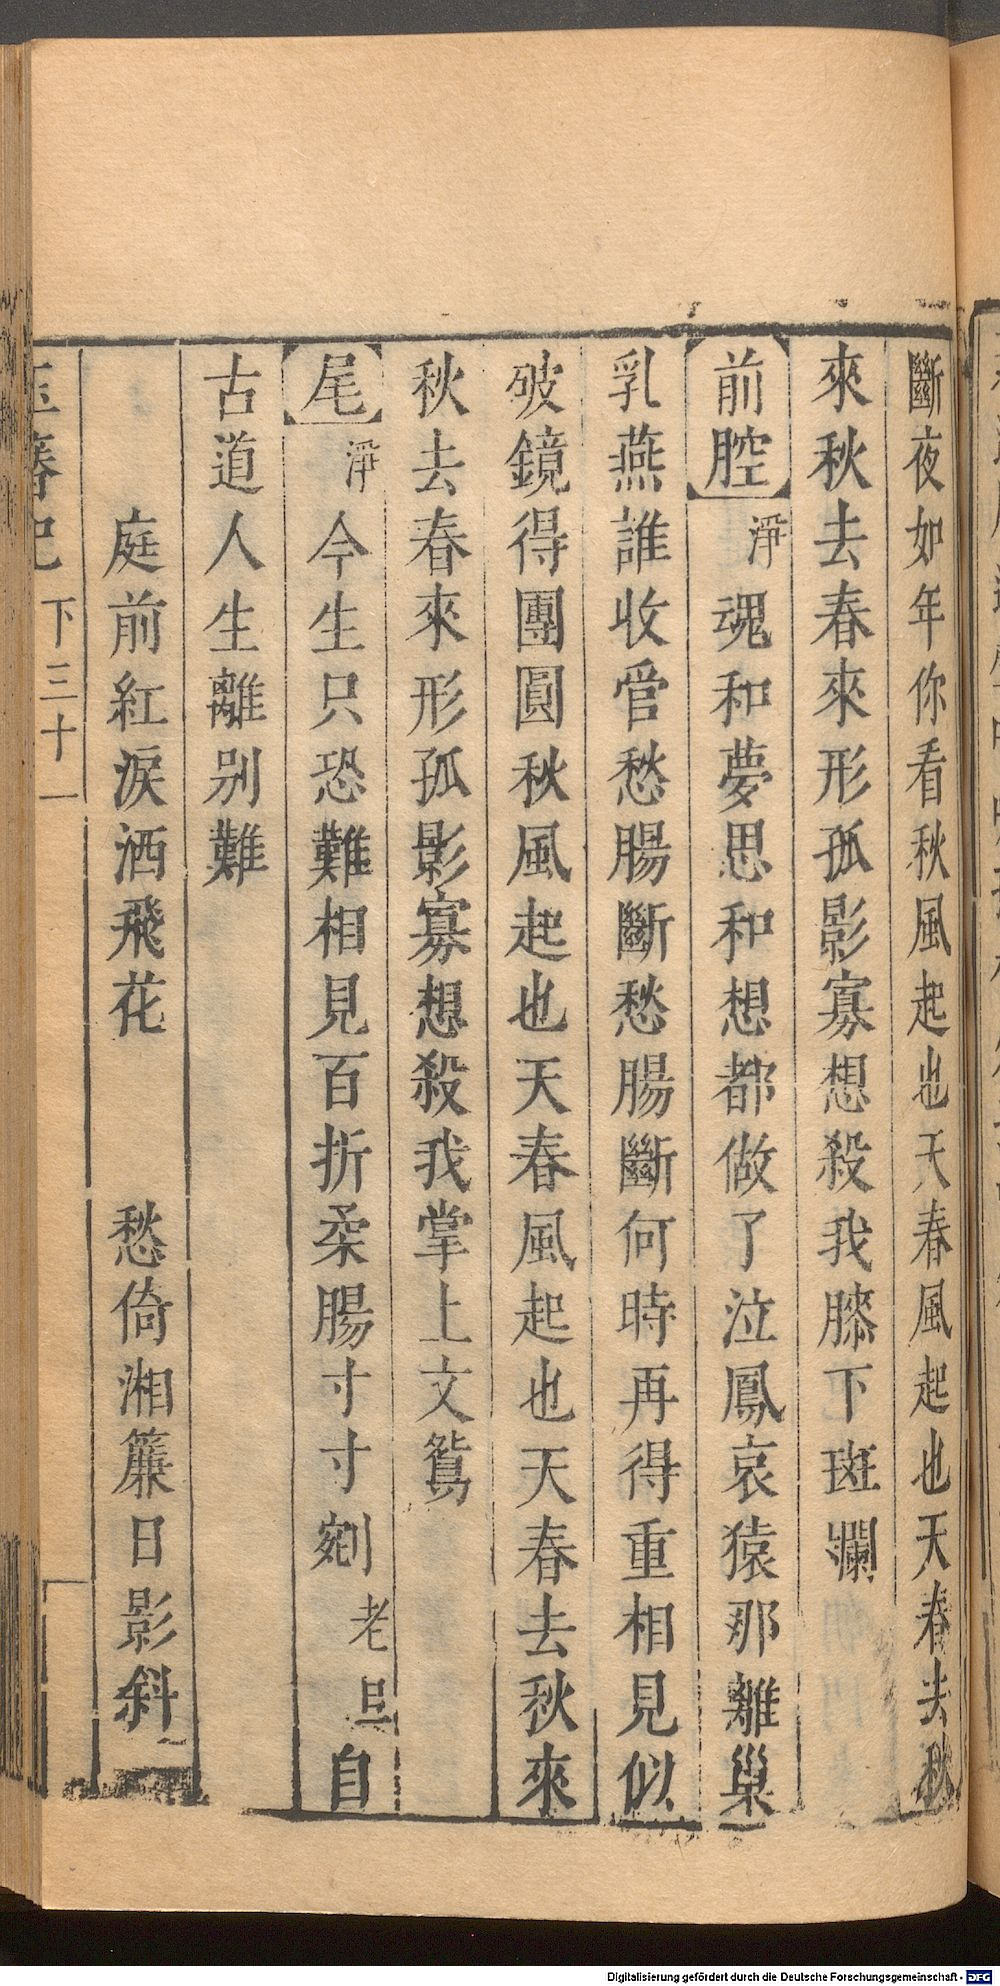 斷夜如年你看秋風起也天春風起也天春去秋
來秋去春來形孤影寡想殺我膝下斑斕
前腔淨魂和夢思和想都做了泣鳳哀猿那離巢
乳燕誰收管愁腸斷愁腸斷何時再得重相見似
破鏡得團圓秋風起也天春風起也天春去秋來
秋去春來形孤影寡想殺我掌上文鴛
尾淨今生只恐難相見百折柔腸寸寸剜老旦自
古道人生離别難
庭前紅淚洒飛花　愁倚湘簾日影斜
玉簪記　下三十一
Digitalisierung gefördert durch die Deutsche Forschungsgemeinschaft - DFG